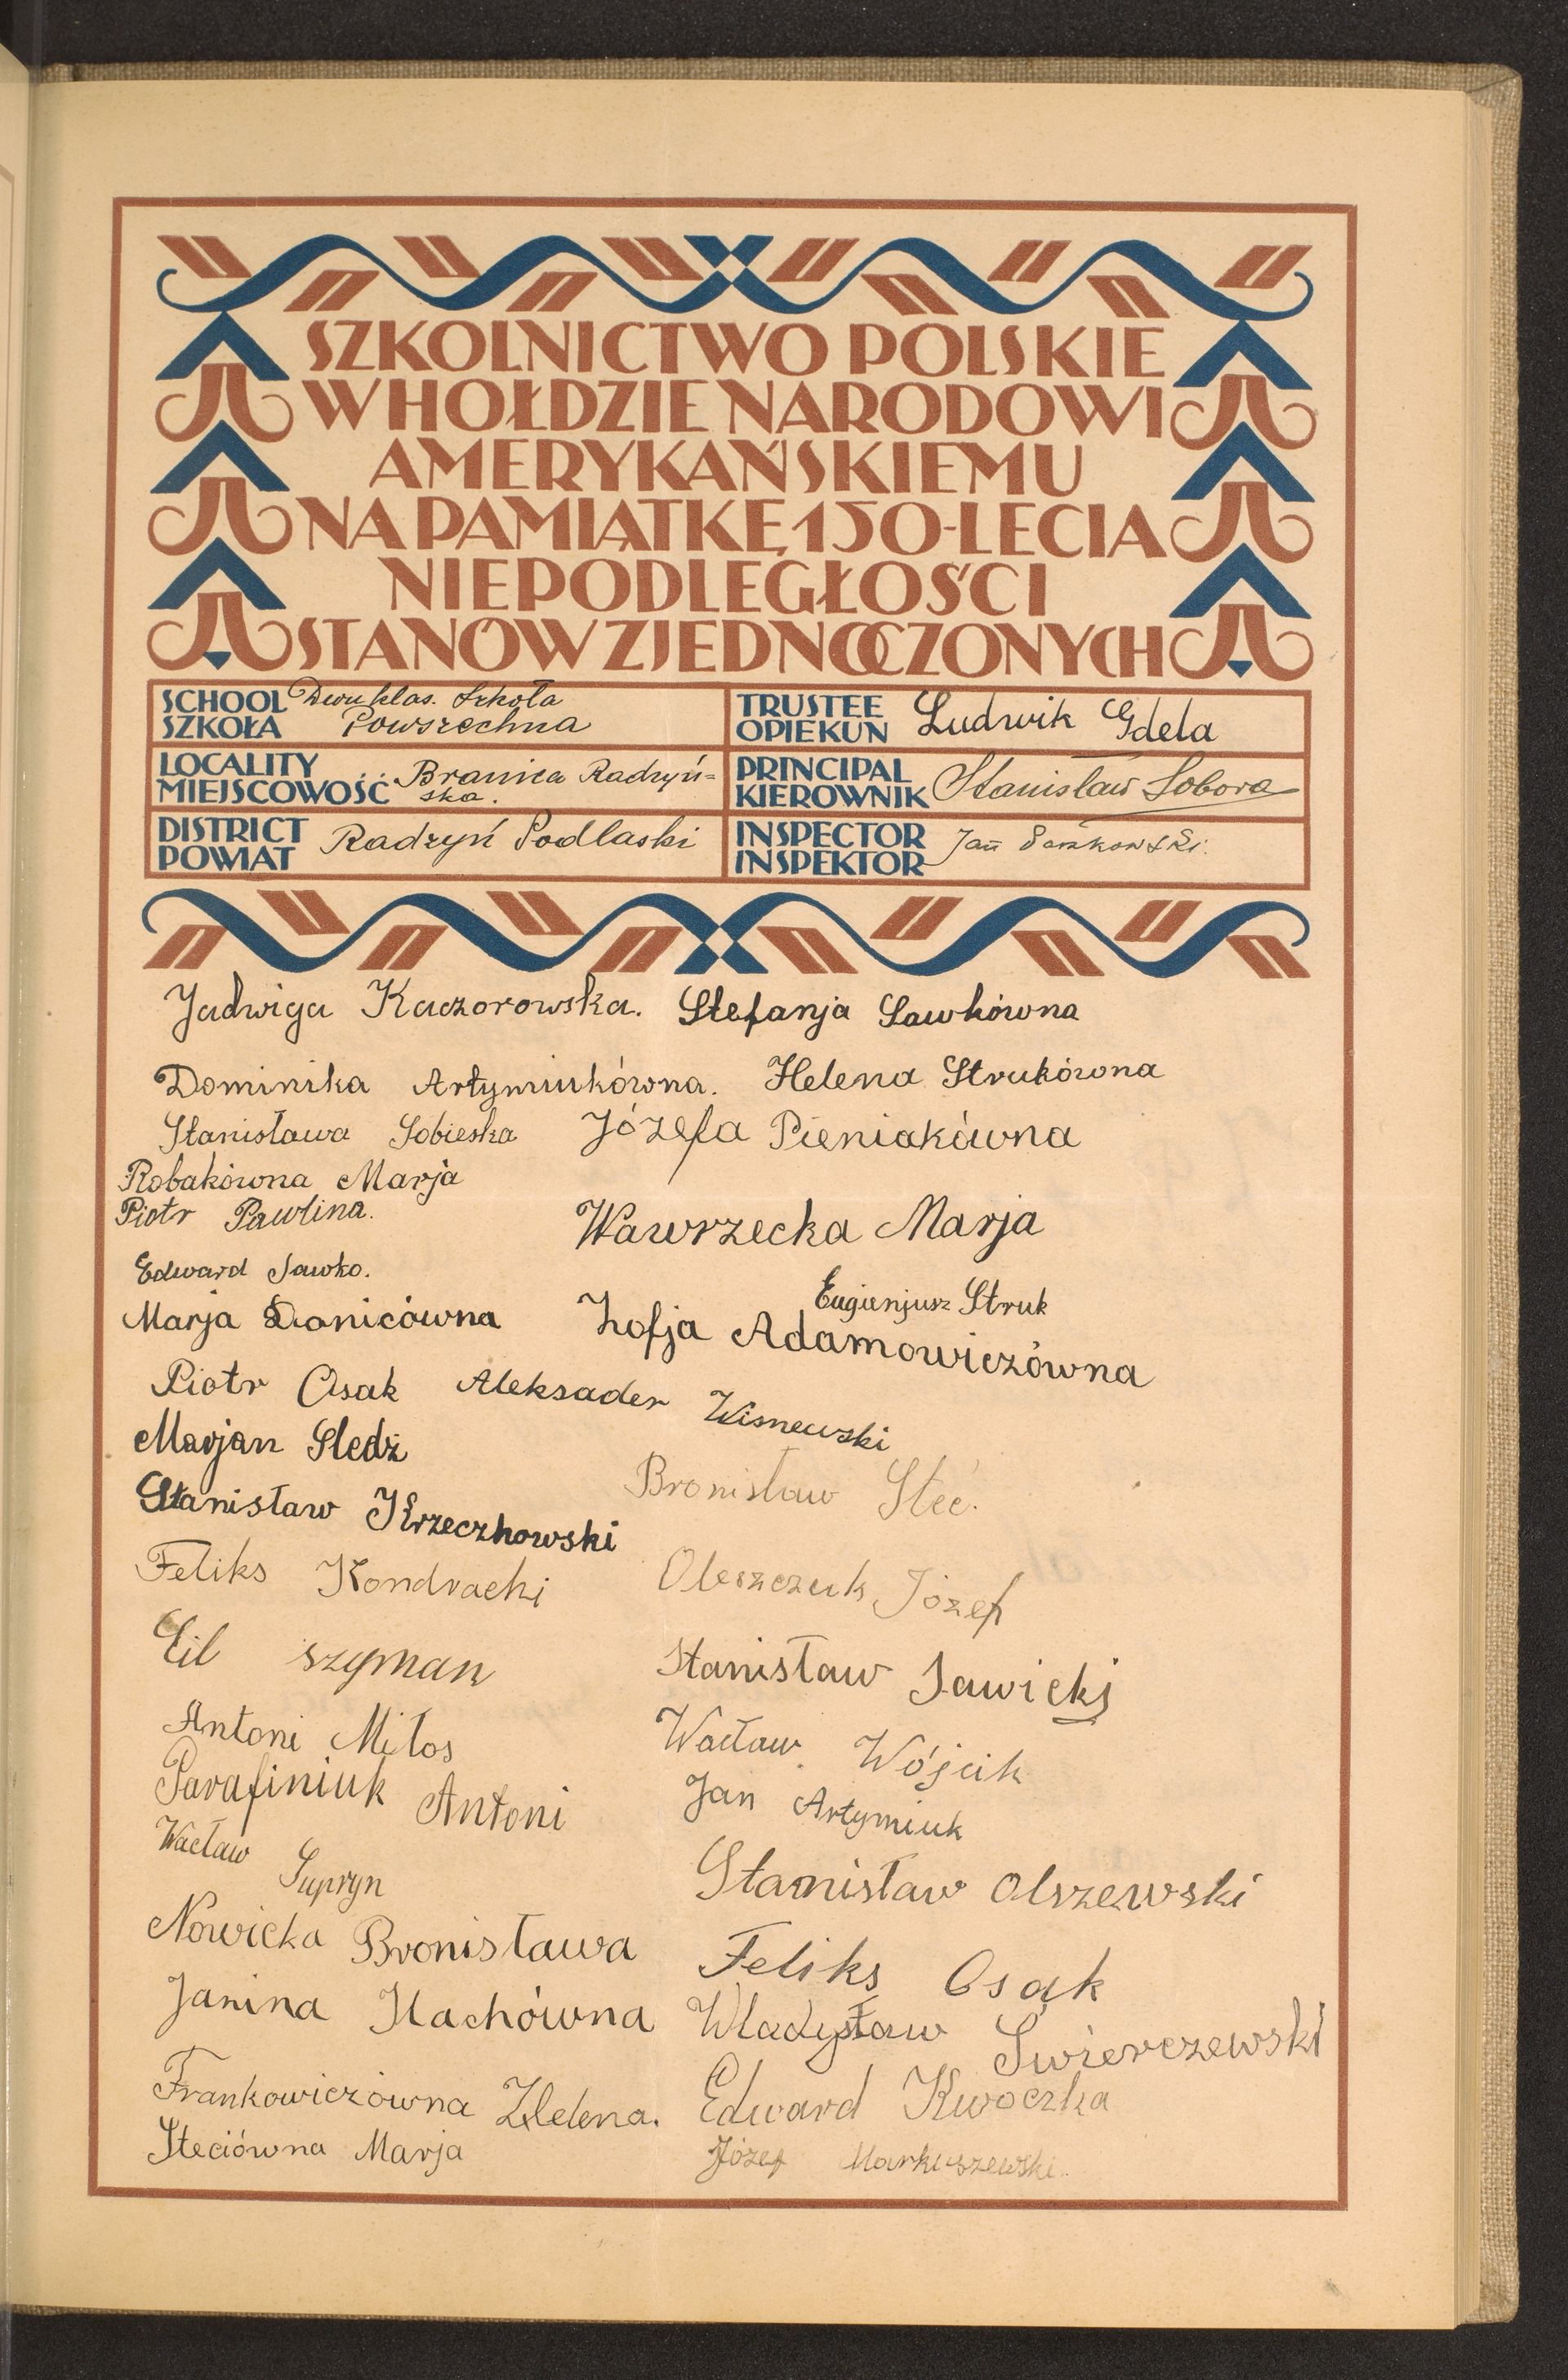 SZKOLNICTWO POLSKIE
W HOŁDZIE NARODOWI
AMERYKAŃSKIEMU
NA PAMIĄTKĘ 150-LECIA
NIEPODLEGŁOŚCI
STANÓW ZJEDNOCZONYCH
SCHOOL SZKOŁA Dwu klas. Szkoła Powszechna
TRUSTEE OPIEKUN Ludwik Gdela
LOCALITY MIEJSCOWOŚĆ Branica Radzyń=ska.
PRINCIPAL KIEROWNIK Stanisław Sobora
DISTRICT POWIAT Radzyń Podlaski
INSPECTOR INSPEKTOR Jan
Jadwiga Kaczorowska. Stefanja Sawkówna
Dominika Artymiukówna. Helena Strukówna
Stanisława Sobieska Józefa Pieniakówna
Robakówna Marja
Piotr Pawlina.
Wawrzecka Marja
Edward Sawko.
Eugienjusz Struk
Marja Danicówna Zofja Adamowiczówna
Piotr Osak Aleksader Wisnewski
Marjan Sledź
Bronisław Steć.
Stanisław Krzeczkowski
Feliks Kondracki Oleszczuk Józef
Lil szyman Stanisław Sawicki
Antoni Miłos Wacław Wójcik
Parafiniuk Antoni Jan Artymiuk
Wacław Supryn Stanisław Olszewski
Nowicka Bronisława Feliks Osak
Janina Stachówna Władysław Swierczewski
Frankowiczówna Helena. Edward Kwoczka
Steciówna Marja Józef Markuszewski.